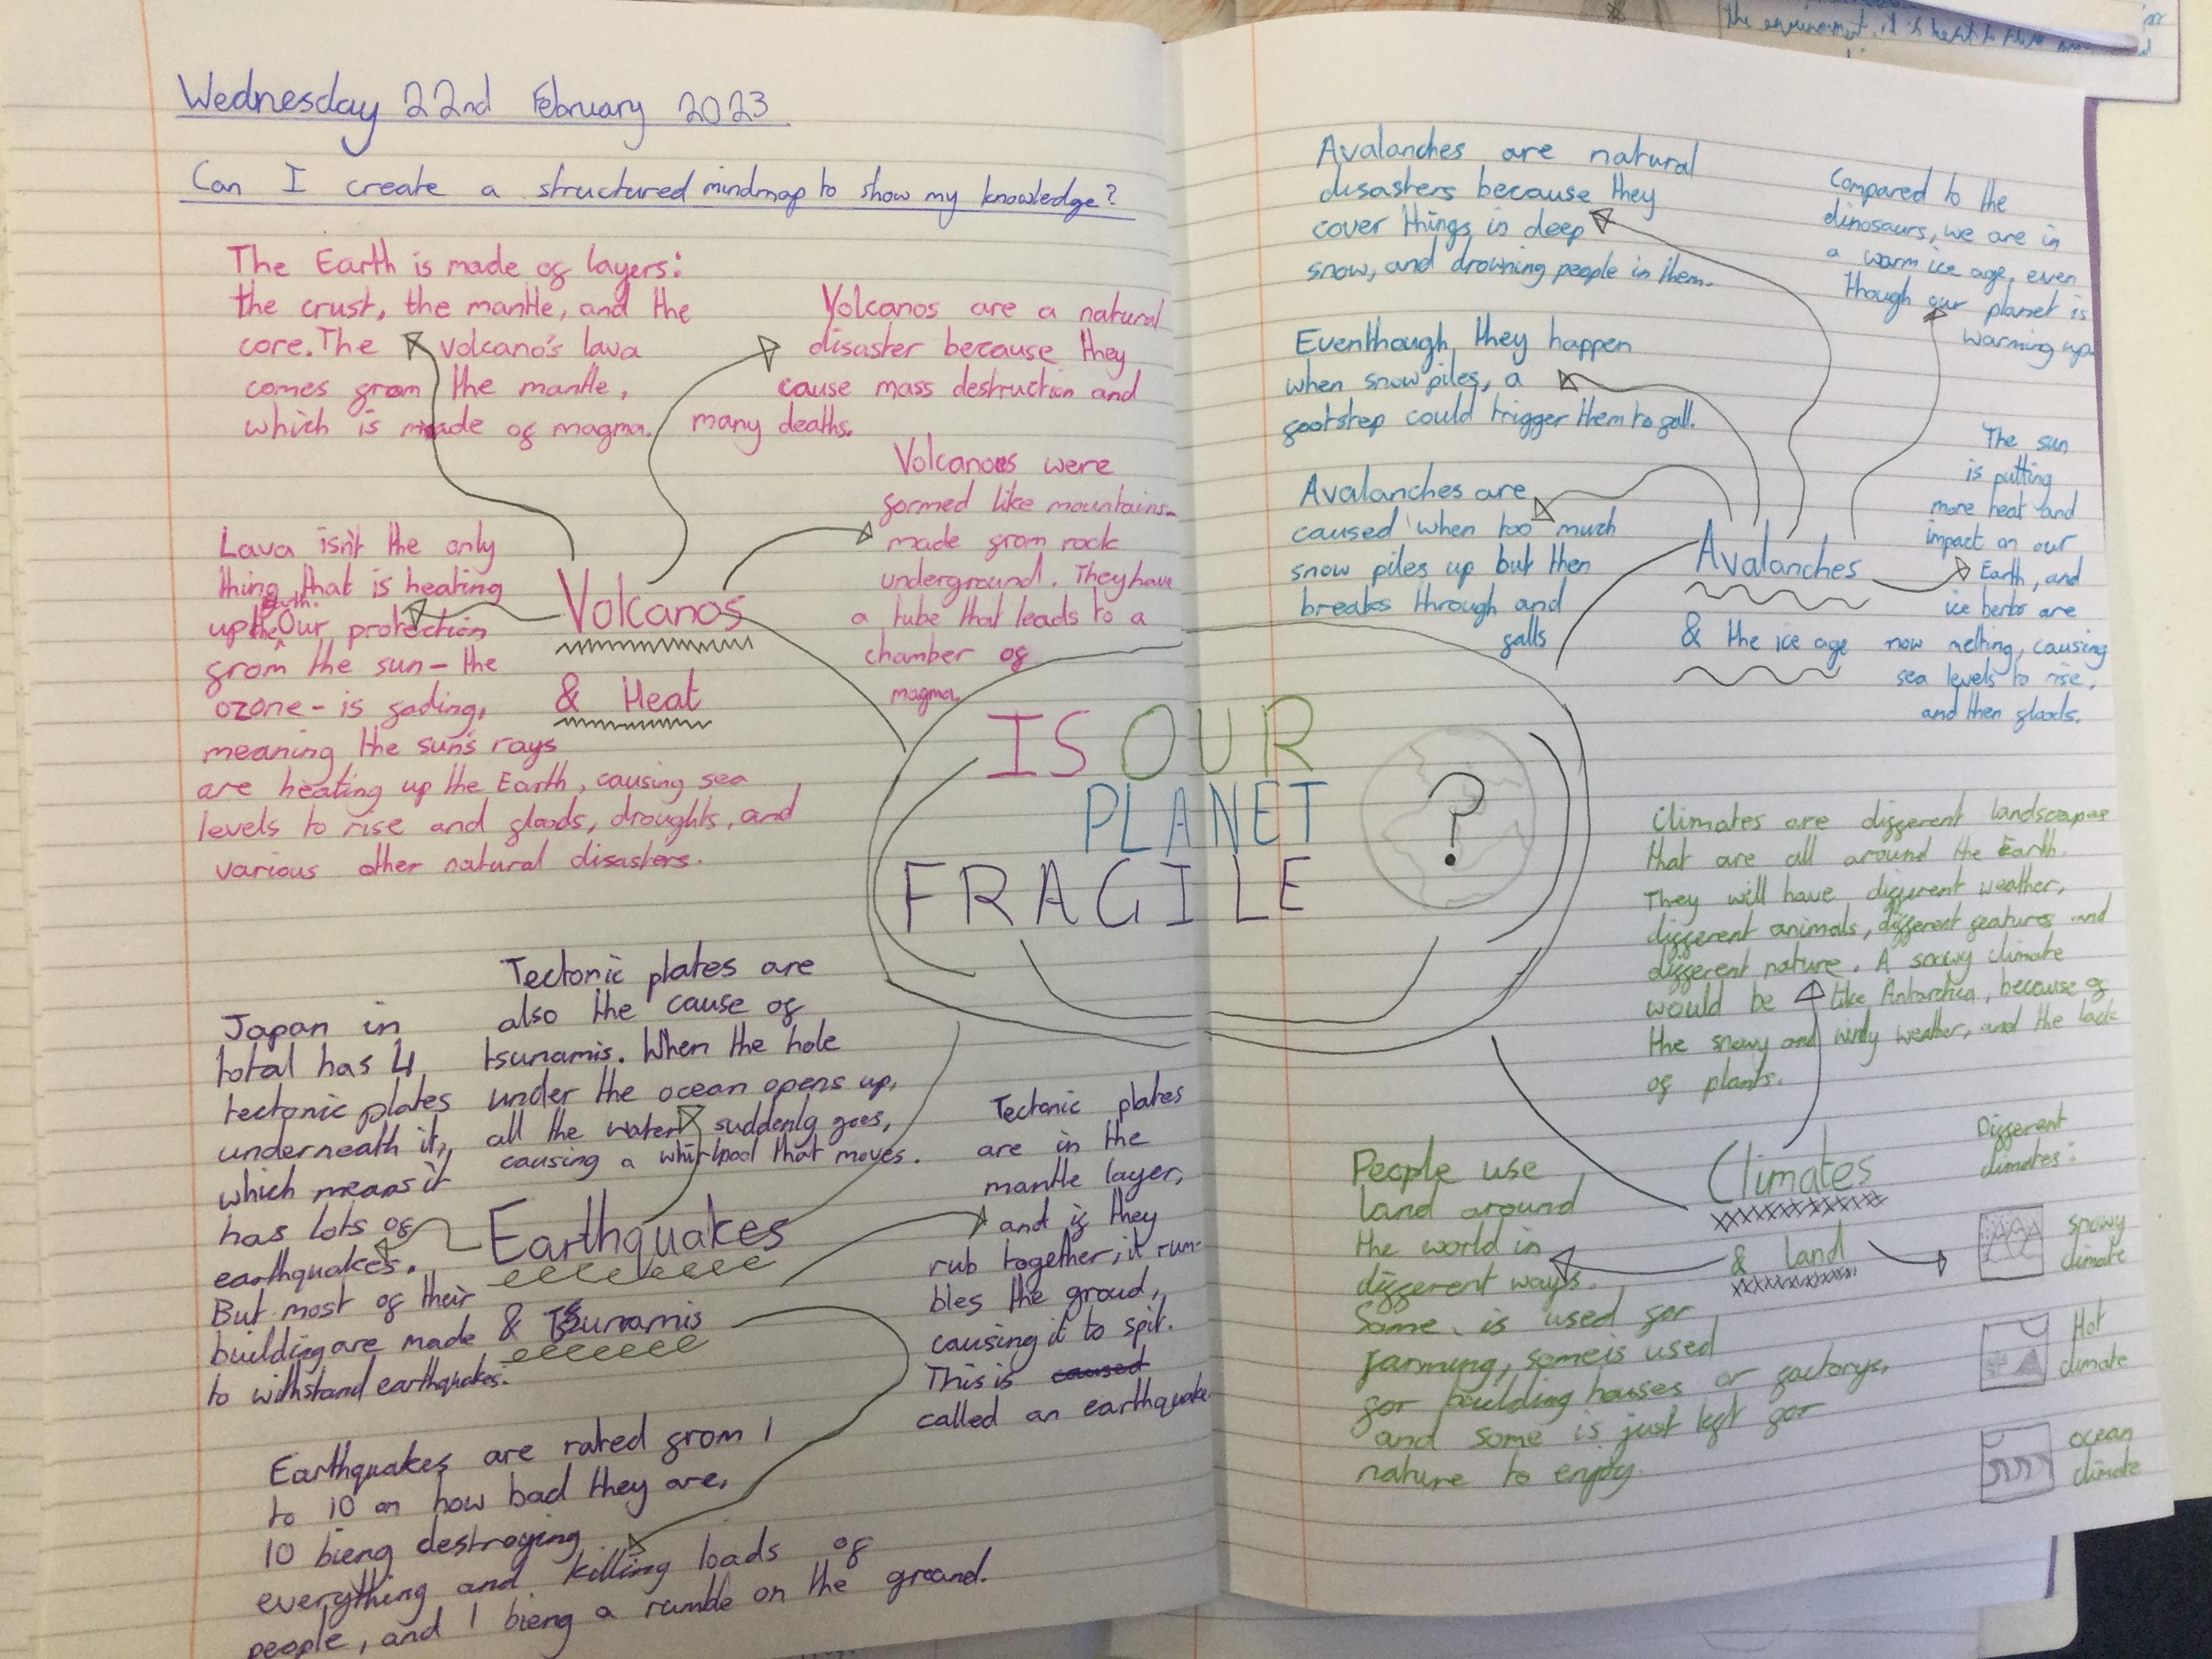 the environment, it is best to
Wednesday 22nd February 2023
Can I create a structured mindmap to show my knowledge?
The Earth is made of layers:
the crust, the mantle, and the
core. The volcano's lava
comes from the mantle,
which is made of magma.
Volcanos are a natural
disaster because they
cause mass destruction and
many deaths.
Volcanoes were
formed like mountains-
made from rock
underground. They have
a tube that leads to a
chamber of
magma.
Lava isn't the only
thing that is heating
up the Earth. Our protection
from the sun - the
ozone - is fading,
meaning the sun's rays
are heating up the Earth, causing sea
levels to rise and floods, droughts, and
various other natural disasters.
Volcanos
& Heat
IS OUR
PLANET
FRAGILE
?
Tectonic plates are
also the cause of
tsunamis. When the hole
under the ocean opens up,
all the water suddenly goes,
causing a whirlpool that moves.
Japan in
total has 4
tectonic plates
underneath it,
which means it
has lots of
earthquakes.
But most of their
building are made
to withstand earthquakes.
Earthquakes
& Tsunamis
Tectonic plates
are in the
mantle layer,
and if they
rub together, it rum-
bles the groud,
causing it to spit.
This is caused
called an earthquake.
Earthquakes are rated from 1
to 10 on how bad they are,
10 bieng destroying
everything and killing loads of
people, and 1 bieng a rumble on the ground.
Avalanches are natural
disasters because they
cover things in deep
snow, and drowning people in them.
Eventhough they happen
when snow piles, a
footstep could trigger them to fall.
Avalanches are
caused when too much
snow piles up but then
breaks through and
falls
Compared to the
dinosaurs, we are in
a warm ice age, even
though our planet is
warming up.
Avalanches
& the ice age
The sun
is putting
more heat and
impact on our
Earth, and
ice berbs are
now melting, causing
sea levels to rise,
and then floods.
Climates are different landscapes
that are all around the Earth.
They will have different weather,
different animals, different features and
different nature. A snowy climate
would be like Antarctica, because of
the snowy and windy weather, and the lack
of plants.
Climates
& land
People use
land around
the world in
different ways.
Some is used for
farming, some is used
for building houses or factorys,
and some is just left for
nature to enjoy.
Different
climates:
snowy
climate
Hot
climate
ocean
climate